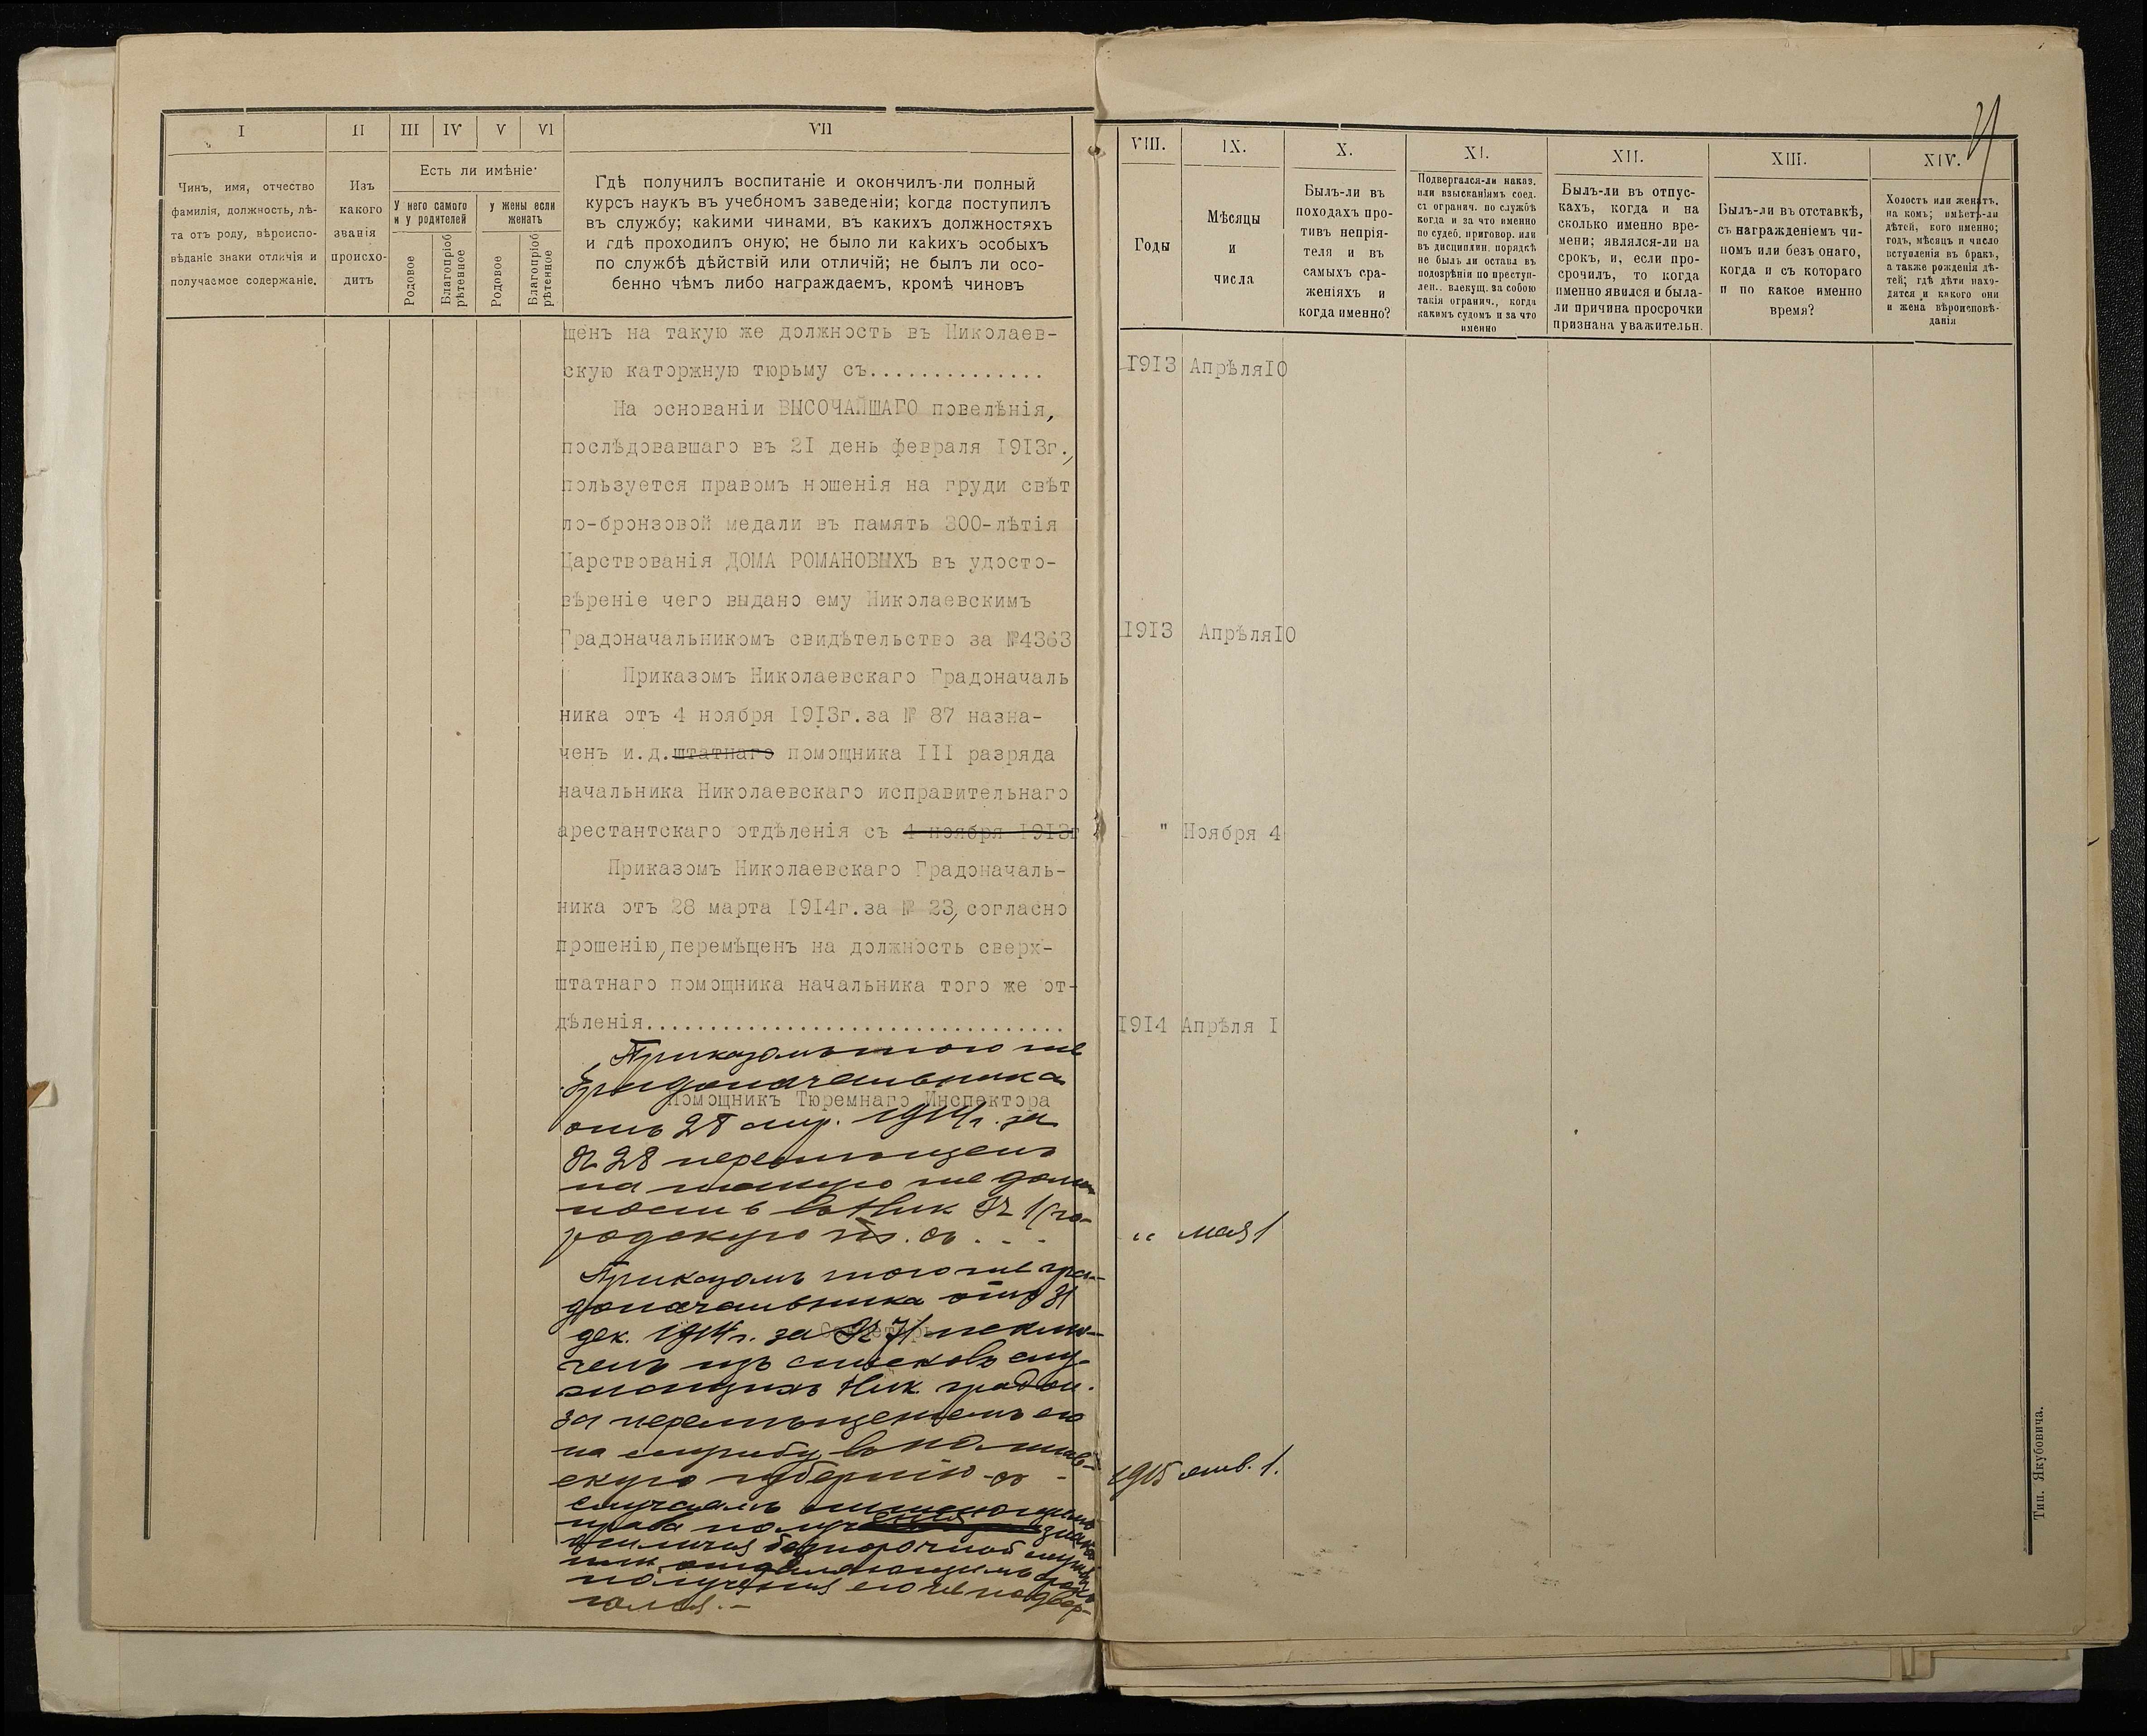 I
II
III
IV
V
VI
VII
Есть ли имѣніе
Чинъ, имя, отчество
фамилія, должность, лѣ-
та отъ роду, вѣроиспо-
вѣданіе знаки отличія и
получаемое содержаніе.
Изъ
какого
званія
происхо-
дитъ
У него самого
и у родителей
у жены если
женатъ
Родовое
Благопріоб
рѣтенное
Родовое
Благопріоб
рѣтенное
Гдѣ получилъ воспитаніе и окончилъ-ли полный
курсъ наукъ въ учебномъ заведеніи; когда поступилъ
въ службу; какими чинами, въ какихъ должностяхъ
и гдѣ проходилъ оную; не было ли какихъ особыхъ
по службѣ дѣйствій или отличій; не былъ ли осо-
бенно чѣмъ либо награждаемъ, кромѣ чиновъ
щенъ на такую же должность въ Николаев-
скую каторжную тюрьму съ..............
На основаніи ВЫСОЧАЙШАГО повелѣнія,
послѣдовавшаго въ 21 день февраля 1913г.,
пользуется правомъ ношенія на груди свѣт
ло-бронзовой медали въ память 300-лѣтія
Царствованія ДОМА РОМАНОВЫХЪ въ удосто-
вѣреніе чего выдано ему Николаевскимъ
Градоначальникомъ свидѣтельство за №4363
Приказомъ Николаевскаго Градоначаль
ника отъ 4 ноября 1913г.за № 87 назна-
ченъ и.д.штатнаго помощника III разряда
начальника Николаевскаго исправительнаго
арестантскаго отдѣленія съ 4 ноября 1913г
Приказомъ Николаевскаго Градоначаль-
ника отъ 28 марта 1914г.за № 23,согласно
прошенію,перемѣщенъ на должность сверх-
штатнаго помощника начальника того же от-
дѣленія.................................
Приказомъ того же
Градоначальника
Помощникъ Тюремнаго Инспектора
отъ 28 апр. 1914г. за
№ 28 перемѣщенъ
на такую же долж
ность въ Ник № 1 (го-
родскую т. съ . - -
Приказомъ того же гра-
доначальника отъ 31
Секретарь
дек. 1914г. за № 71 исклю-
ченъ изъ списковъ слу-
жащихъ Ник. градон.
за перемѣщеніемъ его
на службу въ
скую губернію - съ -
случаямъ лишающимъ
права получ знака
отличія безпорочной службы
или отдаляющимъ срокъ
полученія его не подвер-
гался. -
VIII.
IX.
X.
XI.
XII.
XIII.
XIV.
Годы
Мѣсяцы
и
числа
Былъ-ли въ
походахъ про-
тивъ непрія-
теля и въ
самыхъ сра-
женіяхъ и
когда именно?
Подвергался-ли наказ.
или взысканіямъ соед.
съ огранич. по службѣ
когда и за что именно
по судеб. приговор. или
въ дисциплин. порядкѣ
не былъ ли оставл въ
подозрѣніи по преступ-
лен.. влекущ. за собою
такія огранич., когда
какимъ судомъ и за что
именно
Былъ-ли въ отпус-
кахъ, когда и на
сколько именно вре-
мени; являлся-ли на
срокъ, и, если про-
срочилъ, то когда
именно явился и была-
ли причина просрочки
признана уважительн.
Былъ-ли въ отставкѣ,
съ награжденіемъ чи-
номъ или безъ онаго,
когда и съ котораго
и по какое именно
время?
Холостъ или женатъ,
на комъ; имѣетъ-ли
дѣтей, кого именно;
годъ, мѣсяцъ и число
вступленія въ бракъ,
а также рожденія дѣ-
тей; гдѣ дѣти нахо-
дятся и какого они
и жена вѣроисповѣ-
данія
1913 Апрѣля10
1913 Апрѣля10
" Ноября 4
1914 Апрѣля 1
" мая 1
1915 янв. 1.
Тип. Якубовича.